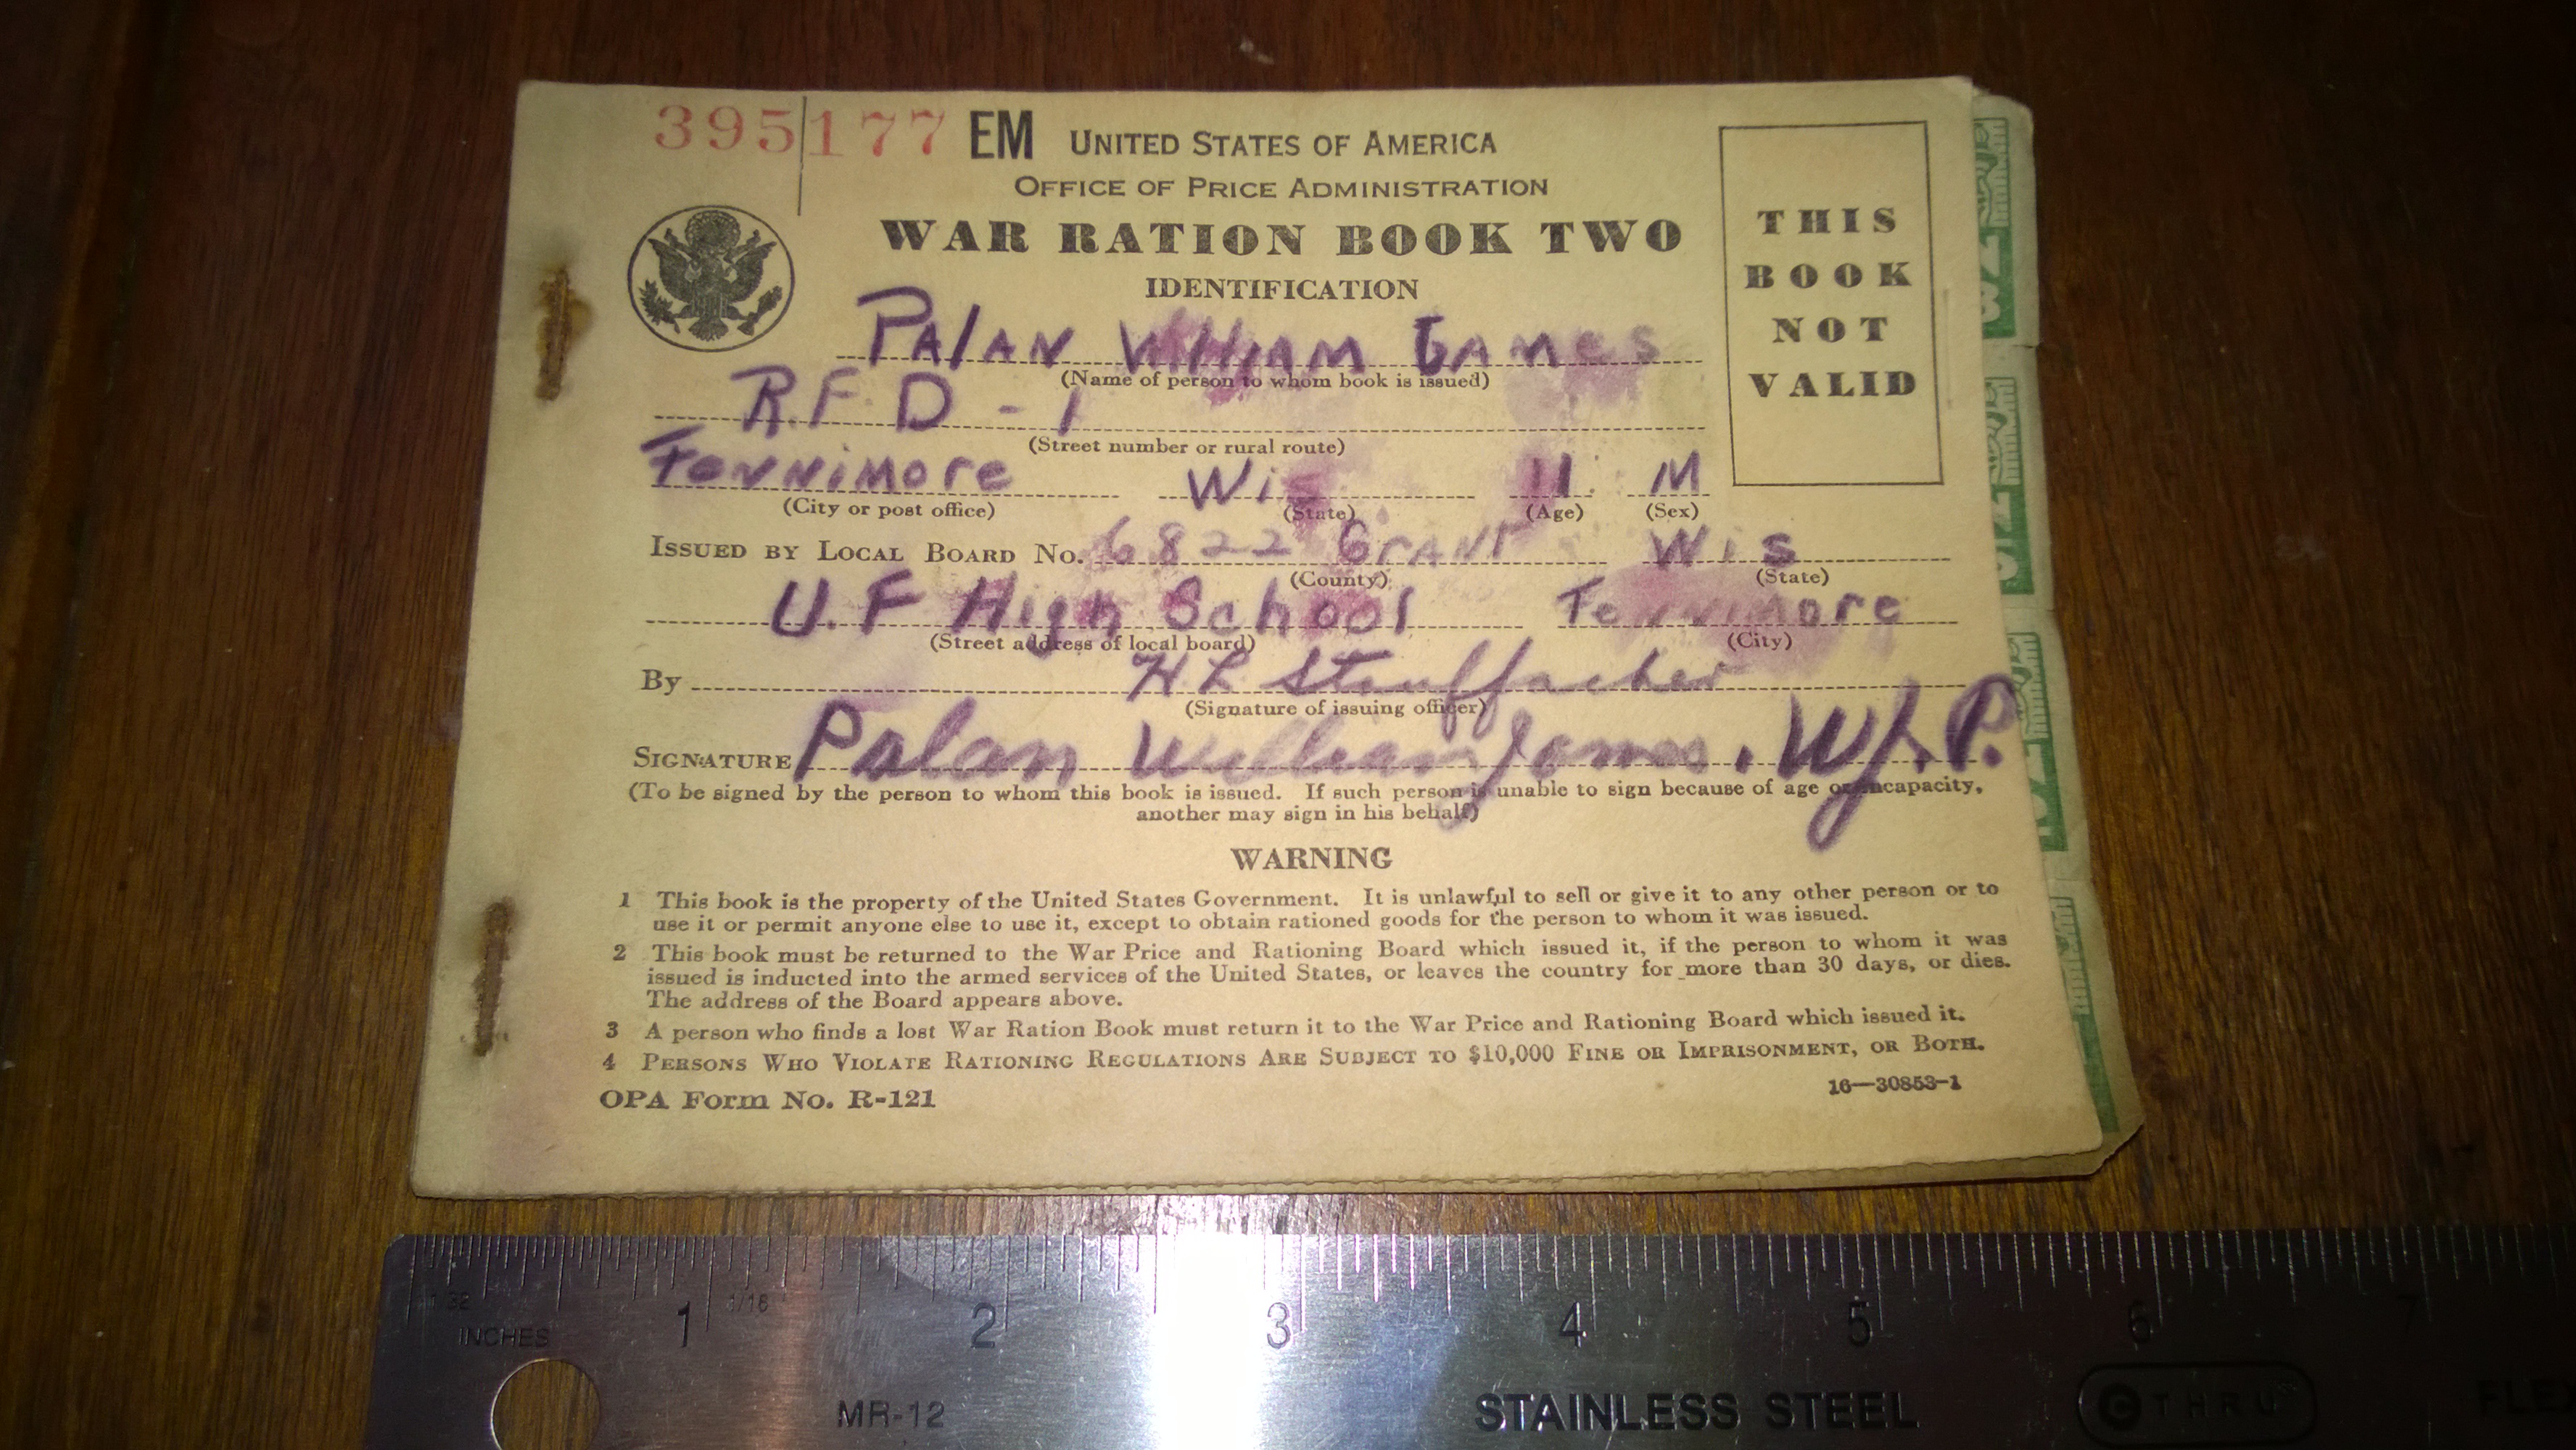 395177 EM UNITED STATES OF AMERICA
OFFICE OF PRICE ADMINISTRATION
WAR RATION BOOK TWO
IDENTIFICATION
THIS
BOOK
NOT
VALID
PALAN William James
(Name of person to whom book is issued)
R.F.D-1
(Street number or rural route)
Fennimore Wis 11 M
(City or post office) (State) (Age) (Sex)
ISSUED BY LOCAL BOARD No. 6822 GRANT Wis
(County) (State)
U.F High School Fennimore
(Street address of local board) (City)
By H L Stauffacher
(Signature of issuing officer)
SIGNATURE Palan William James. W.J.P.
(To be signed by the person to whom this book is issued. If such person is unable to sign because of age or incapacity,
another may sign in his behalf)
WARNING
1 This book is the property of the United States Government. It is unlawful to sell or give it to any other person or to
use it or permit anyone else to use it, except to obtain rationed goods for the person to whom it was issued.
2 This book must be returned to the War Price and Rationing Board which issued it, if the person to whom it was
issued is inducted into the armed services of the United States, or leaves the country for more than 30 days, or dies.
The address of the Board appears above.
3 A person who finds a lost War Ration Book must return it to the War Price and Rationing Board which issued it.
4 PERSONS WHO VIOLATE RATIONING REGULATIONS ARE SUBJECT TO $10,000 FINE OR IMPRISONMENT, OR BOTH.
OPA Form No. R-121
16—30853-1
1/32 1 1/16 2 3 4 5 6 7
INCHES
MR-12 STAINLESS STEEL C-THRU